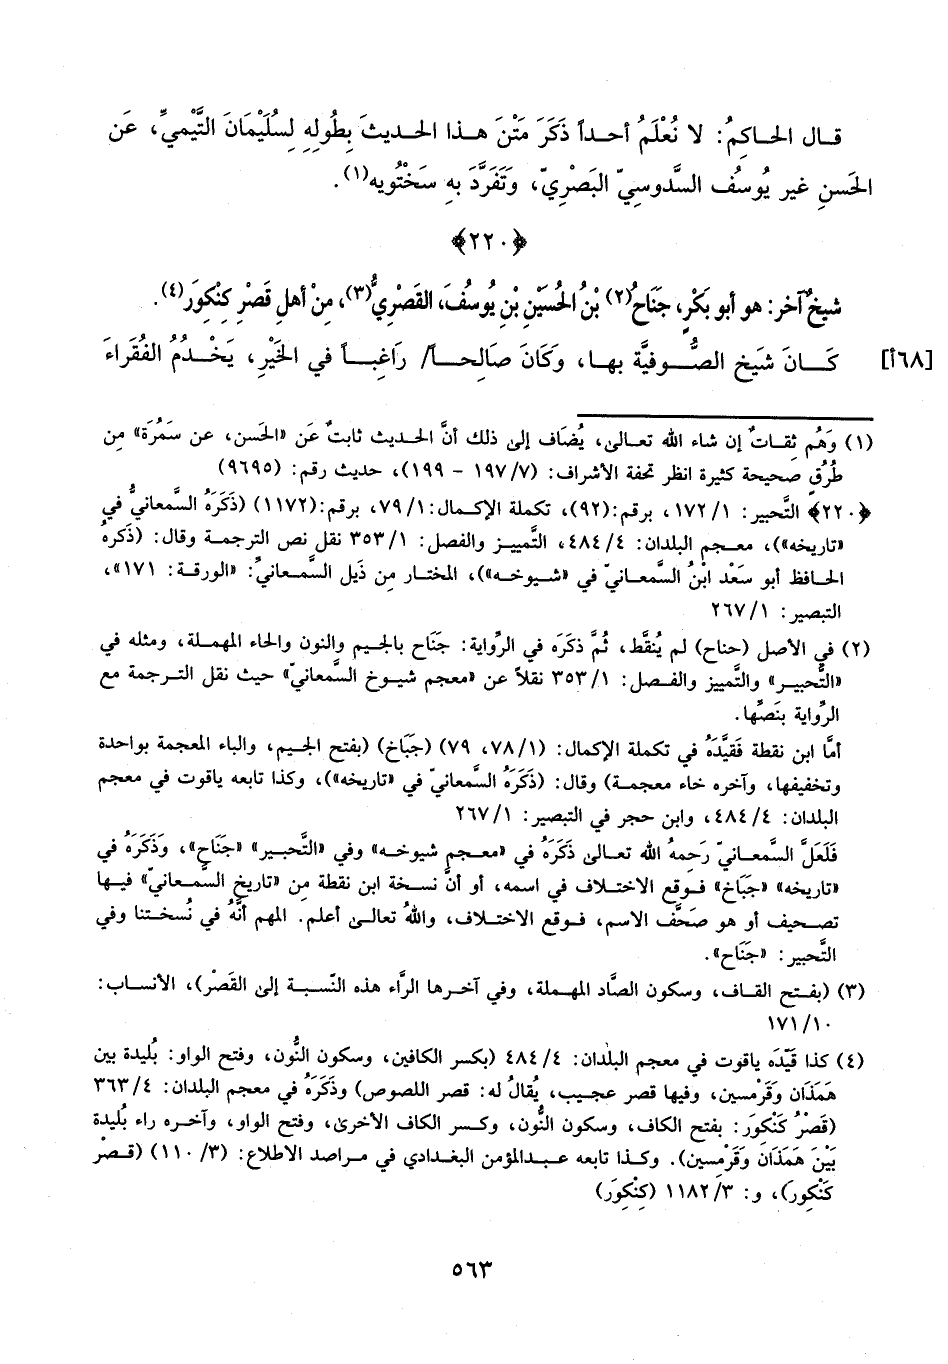 قال الحاكمُ: لا نُعْلَمُ أحداً ذَكَرَ مَتْنَ هذا الحديثَ بِطُولِهِ لِسُلَيْمَانَ التَّيْميِّ، عَن
الحَسنِ غير يُوسُف السَّدوسيّ البَصْرِيّ، وَتَفَرَّدَ بهِ سَخْتُويه(١).
﴿٢٢٠﴾
شيخٌ آخر: هو أبو بَكْرٍ، جَنَاحُ(٢) بْنُ الحُسَيْنِ بْنِ يُوسُفَ، القَصْرِيُّ(٣)، مِنْ أهلِ قَصْرِ كِنْكِوَر(٤).
كَــانَ شَيَخ الصُّــوفيَّة بها، وَكَانَ صَالِحـاً/ رَاغِبـاً في الخَيْرِ، يَخْدُمُ الفُقَراءَ [٦٨أ]
(١) وَهُم ثِقَاتٌ إن شاء الله تعالى، يُضَاف إلى ذلك أنَّ الحديث ثابتٌ عَن «الحَسن، عن سَمُرَة» مِن
طُرُقٍ صَحيحة كثيرة انظر تحفة الأشراف: (١٩٧/٧ - ١٩٩)، حديث رقم: (٩٦٩٥)
﴿٢٢٠﴾ التَّحبير: ١/ ١٧٢، برقم:(٩٢)، تكملة الإكمال:٧٩/١، برقم:(١١٧٢) (ذَكَرَهُ السَّمعانيُّ في
«تاريخه»)، معجم البلدان: ٤/ ٤٨٤، التَّمييز والفصل: ٣٥٣/١ نقل نص الترجمة وقال: (ذَكرهُ
الحافظ أبو سَعْد ابْنُ السَّمعانيّ في «شيوخه»)، المختار مِن ذَيل السَّمعانيِّ: «الورقة: ١٧١»،
التبصير: ٢٦٧/١
(٢) في الأصل (حناح) لم يُنقَّط، ثُمَّ ذكَرَه في الرِّواية: جَنَاح بالجيم والنون والحاء المهملة، ومثله في
«التَّحبير» والتَّمييز والفصل: ٣٥٣/١ نقلاً عن «معجم شيوخ السمعانيّ» حيث نقل الترجمة مع
الرِّواية بنَصِّها.
أمَّا ابن نقطة فَقيَّدَهُ في تكملة الإكمال: (٧٨/١، ٧٩) (جَبَاخ) (بفتح الجيم، والباء المعجمة بواحدة
وتخفيفها، وآخره خاء معجمة) وقال: (ذَكَرَهُ السَّمعانيّ في «تاريخه»)، وكذا تابعه ياقوت في معجم
البلدان: ٤/ ٤٨٤، وابن حجر في التبصير: ٢٦٧/١
فَلَعَلَّ السَّمعانيّ رَحِمهُ الله تعالى ذَكَرَهُ في «معجم شيوخه» وفي «التَّحبير» «جَنَاح»، وَذَكَرَهُ في
«تاريخه» «جَبَاخ» فوقع الاختلاف في اسمه، أو أنَّ نسخة ابن نقطة مِن «تاريخ السَّمعانيّ» فيها
تصحيف أو هو صَحَّف الاسم، فوقع الاختلاف، واللهُ تعالى أعلم. المهم أنَّهُ في نُسختنا وفي
التَّحبير: «جَنَاح».
(٣) (بفتح القاف، وسكون الصَّاد المهملة، وفي آخرها الرَّاء هذه النّسبة إلى القَصْر)، الأنساب:
١٧١/١٠
(٤) كذا قيَّدَه ياقوت في معجم البلدان: ٤/ ٤٨٤ (بكسر الكافين، وسكون النُّون، وفتح الواو: بُليدة بين
هَمَذَان وَقَرْمسين، وفيها قصر عجيب، يُقالُ له: قصر اللصوص) وذَكَرَهُ في معجم البلدان: ٤/ ٣٦٣
(قَصْرُ كَنْكِوَر: بفتح الكاف، وسكون النُّون، وكسر الكاف الأخرى، وفتح الواو، وآخره راء بُليدة
بَيْنَ هَمَذَانَ وَقَرْمِسين). وكذا تابعه عبدالمؤمن البغدادي في مراصد الاطلاع: (٣/ ١١٠) (قصْر
كَنْكِوَر)، و: ٣/ ١١٨٢ (كِنْكِوَر)
٥٦٣